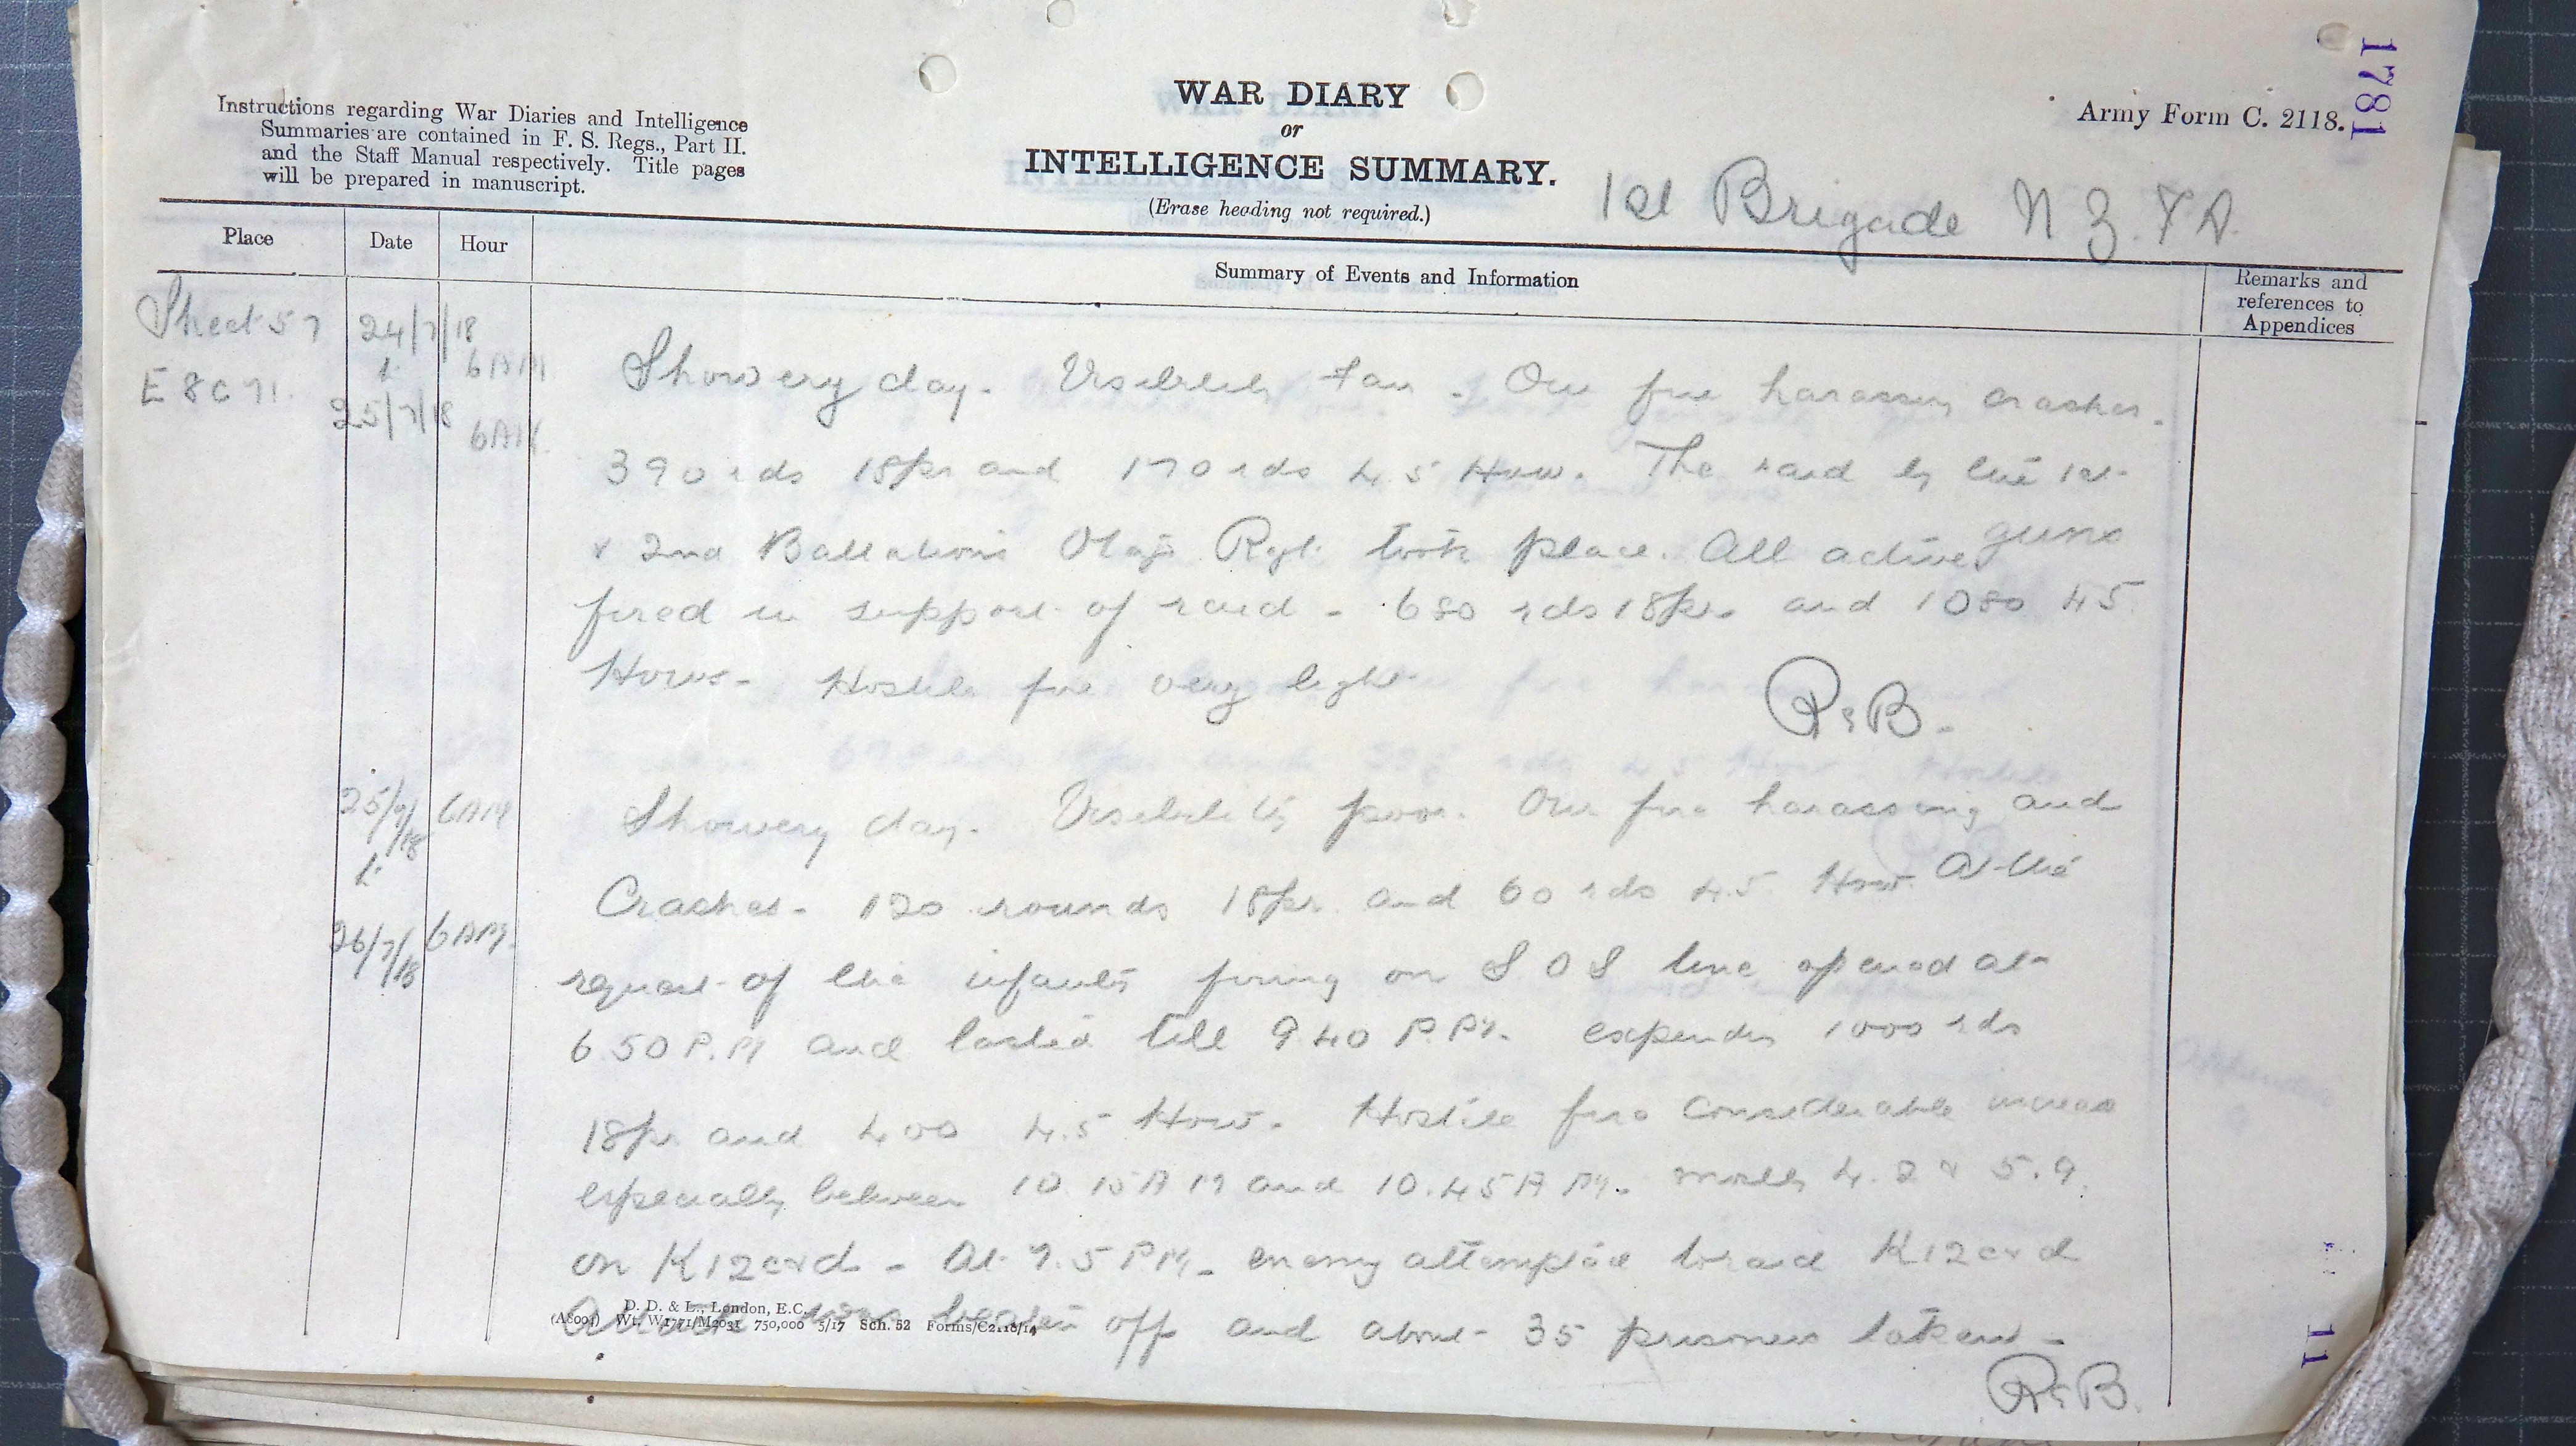 WAR DIARY
or
INTELLIGENCE SUMMARY.
(Erase heading not required.)
Instructions regarding War Diaries and Intelligence
Summaries are contained in F. S. Regs., Part II.
and the Staff Manual respectively. Title pages
will be prepared in manuscript.
Army Form C. 2118.
1781
1st Brigade N Z. F A.
Place Date Hour Summary of Events and Information Remarks and references to Appendices
Sheet 57 24/7/18 6AM
E 8 C 71. 25/7/18 6AM.
Showery day. Visibility fair. Our fire harassing crashes.
390 rds 18pr and 170 rds 4.5 How. The raid by the 1st
& 2nd Battalions Otago Regt. took place. All active guns
fired in support of raid - 680 rds 18pr. and 1080 4.5
Hows. Hostile fire very light.
RsB.
25/7/18 6AM
26/7/18 6AM.
Showery day. Visibility poor. Our fire harassing and
Crashes. 120 rounds 18pr and 60 rds 4.5 How. At the
request of the infantry firing on S O S line opened at
6.50 P.M and lasted till 9.40 P.M. expending 1000 rds
18pr and 400 4.5 How. Hostile fire considerable increase
especially between 10.15 A M and 10.45 A M. mostly 4.2 & 5.9.
on K12c&d - At 7.5 PM. enemy attempted to raid K12c&d
Attack was beaten off and about 35 prisoners taken -
RsB.
D. D. & L., London, E.C.
(A8001) Wt. W1771/M2031 750,000 5/17 Sch. 52 Forms/C2118/14
11